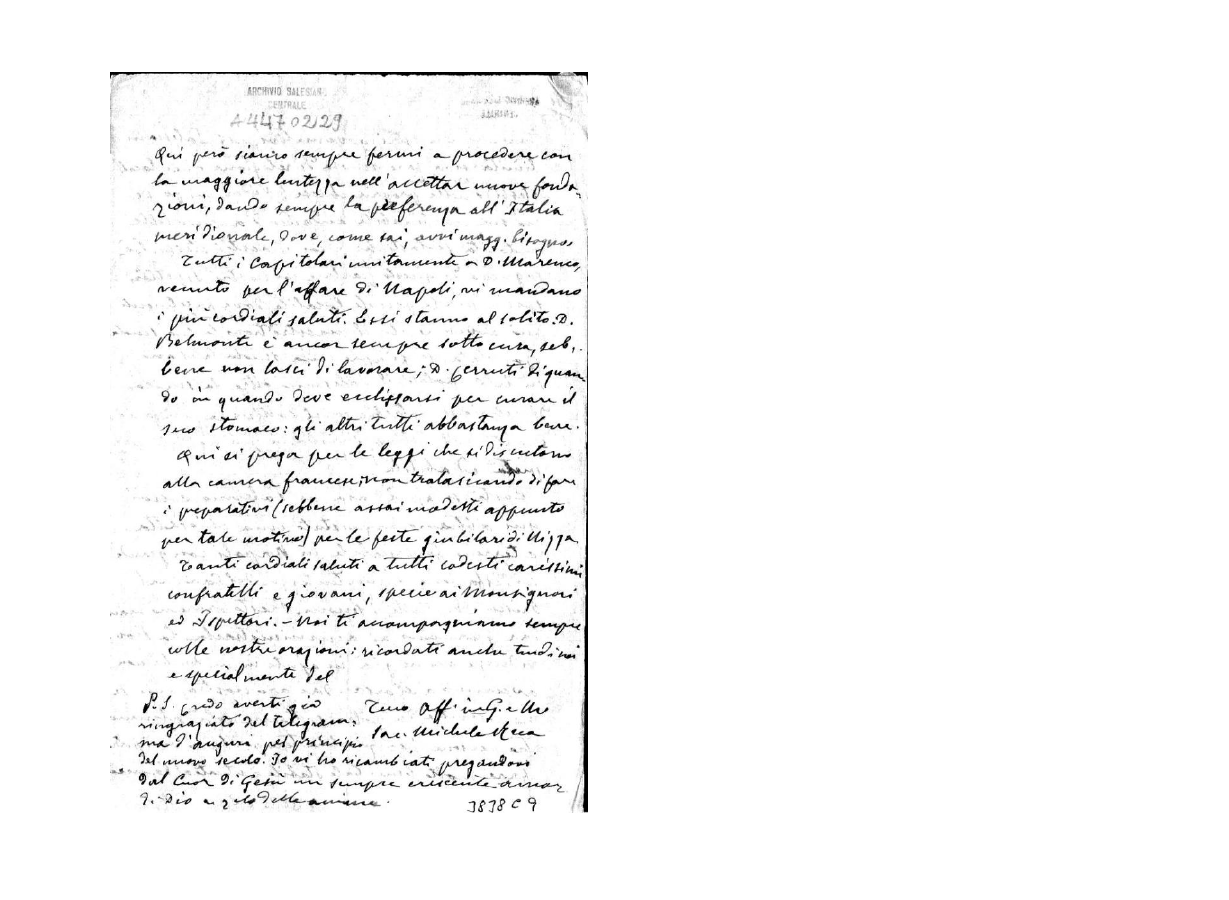 ARCHIVIO SALESIANO
CENTRALE
A4470229
Qui però siamo sempre fermi a procedere con
la maggiore lentezza nell'accettar nuove fonda-
zioni, dando sempre la preferenza all'Italia
meridionale, dove, come sai, avvi magg. bisogno.
Tutti i Capitolari unitamente a D. Marenco,
venuto per l'affare di Napoli, vi mandano
i più cordiali saluti. Essi stanno al solito. D.
Belmonte è ancor sempre sotto cura, seb-
bene non lasci di lavorare; D. Cerruti di quan
do in quando deve ecclissarsi per curare il
suo stomaco: gli altri tutti abbastanza bene.
Qui si prega per le leggi che si discutono
alla camera francese, non tralasciando di fare
i preparativi (sebbene assai modesti appunto
per tale motivo) per le feste giubilari di Nizza
Tanti cordiali saluti a tutti codesti carissimi
confratelli e giovani, specie ai Monsignori
ed Ispettori. - Noi ti accompagniamo sempre
colle nostre orazioni: ricordati anche tu di noi
e specialmente del
Tuo Aff. in G. e M.
Sac. Michele Rua
P.S. Credo averti già
ringraziato del telegram-
ma d'auguri pel principio
del nuovo secolo. Io vi ho ricambiati pregandovi
dal Cuor di Gesù un sempre crescente amor
di Dio e zelo delle anime.
3838 C 9